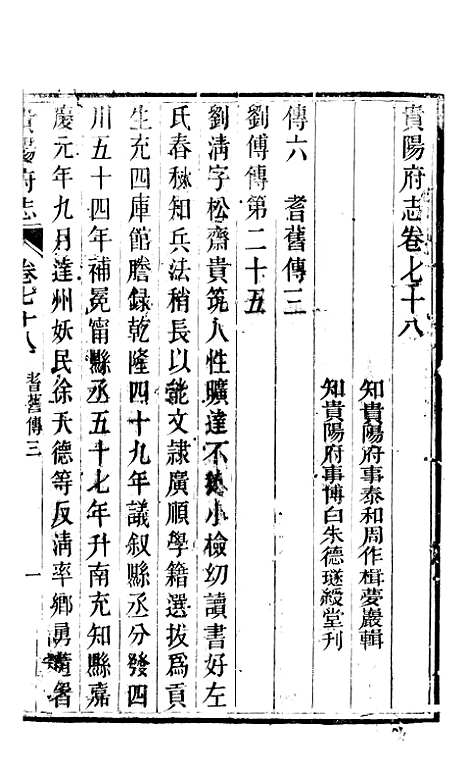 貴陽府志卷七十八
知貴陽府事泰和周作楫夢巖輯
知貴陽府事博白朱德璲綬堂刊
傳六 耆舊傳三
劉傅傳第二十五
劉清字松齋貴筑人性曠達不拘小檢幼讀書好左
氏春秋知兵法稍長以能文隸廣順學籍選拔爲貢
生充四庫館謄録乾隆四十九年議叙縣丞分發四
川五十四年補冕甯縣丞五十七年升南充知縣嘉
慶元年九月達州妖民徐天德等反清率鄉勇
貴陽府志 卷七十八 耆舊傳三 一